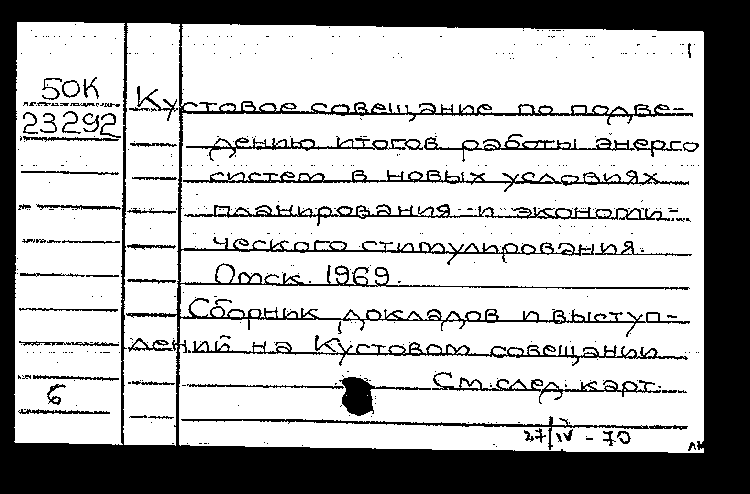 1
50К
23292
Кустовое совещание по подве-
дению итогов работы энерго
систем в новых условиях
планирования и экономи-
ческого стимулирования.
Омск. 1969.
Сборник докладов и выступ-
лений на Кустовом совещании
См. след. карт.
6
27/IV - 70